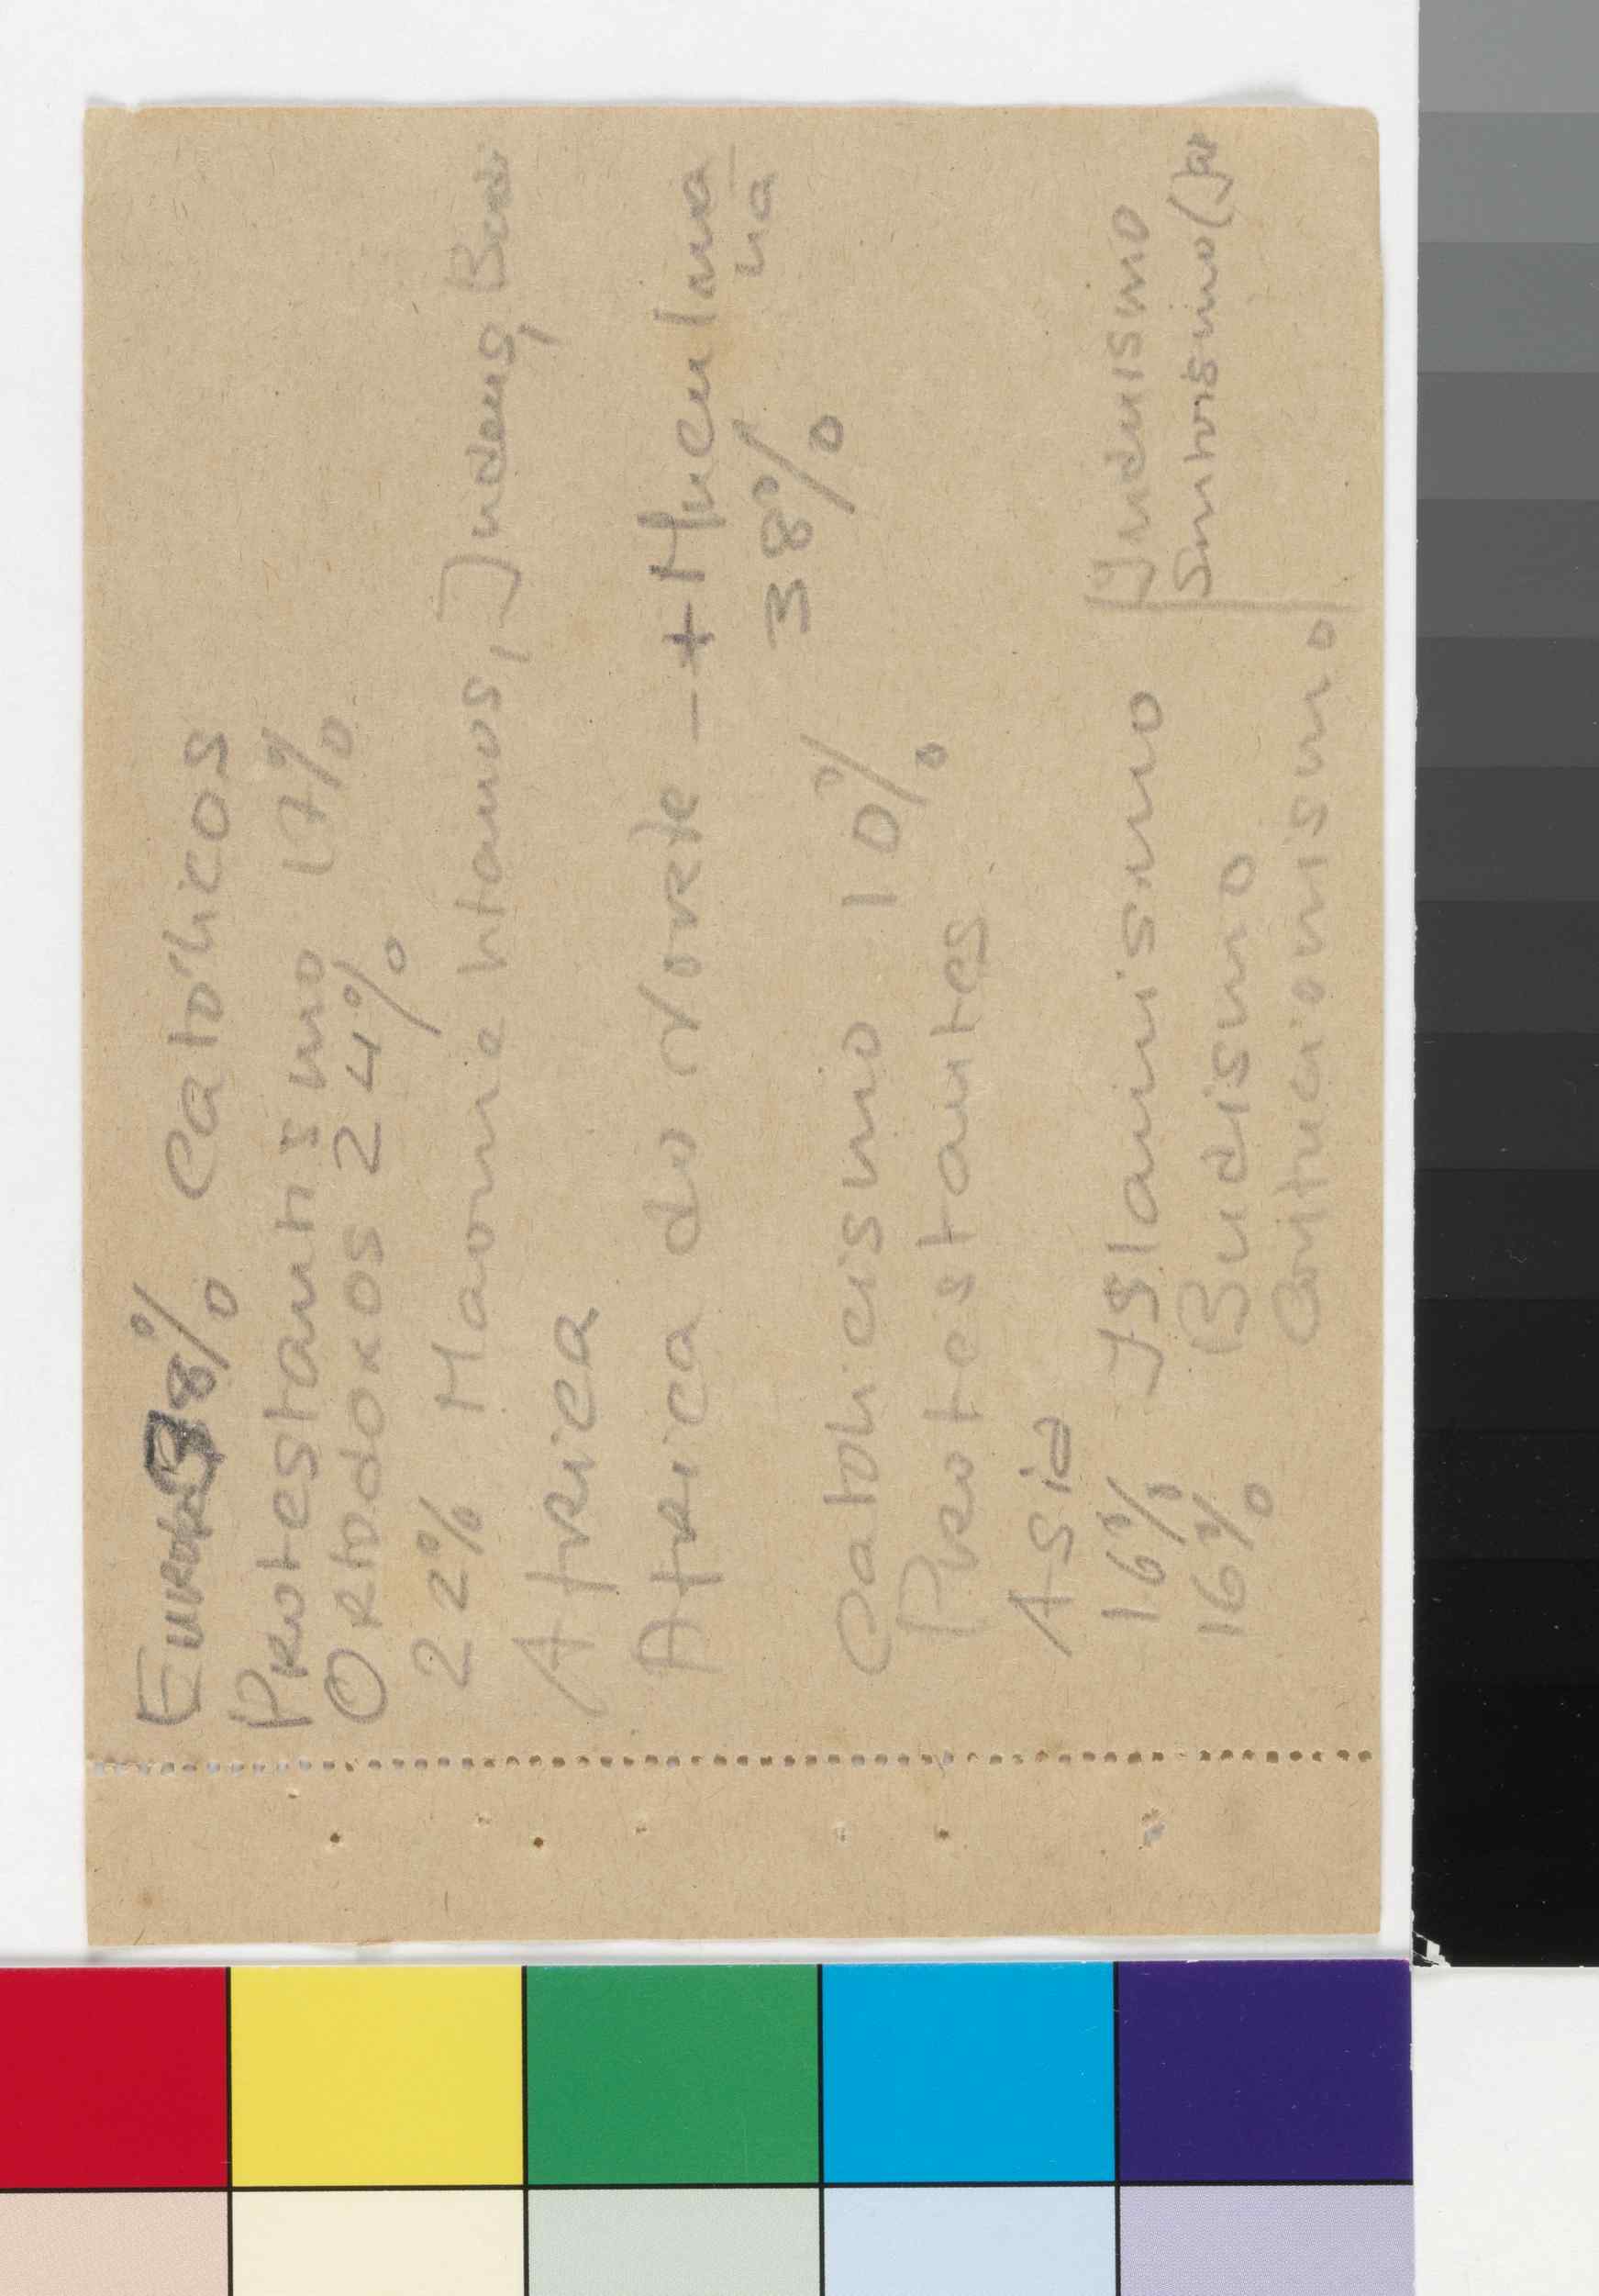 Europa 38% Católicos
Protestantismo 17%
Ortodoxos 24%
22% Maometanos, Judeus,
Africa
Africa do Norte - + Muculma
na
38%
Catolicismo 10%
Protestantes
Asia
16% Islamismo | Induismo
16% Budismo | Sintoismo (Ja
Confucionismo